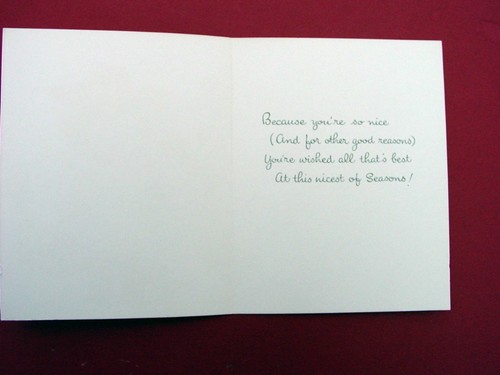 Because you're so nice
(And for other good reasons)
You're wished all that's best
At this nicest of Seasons!